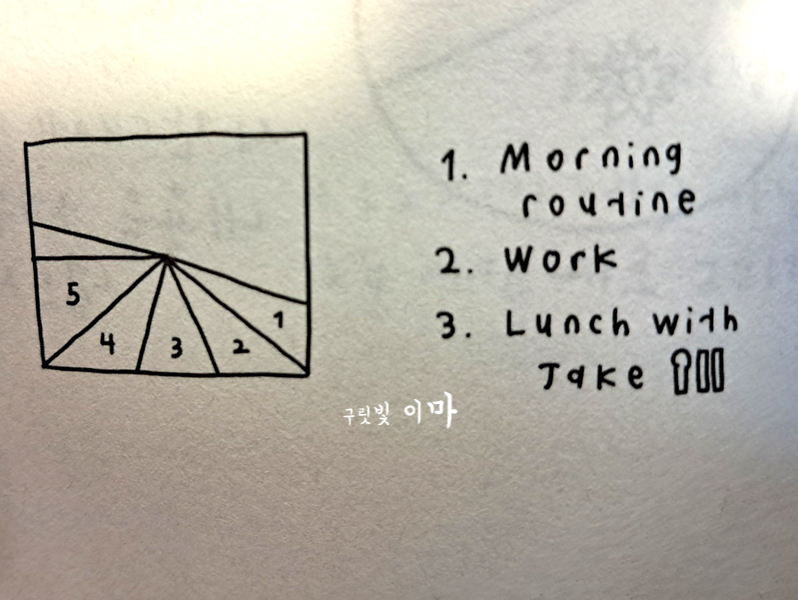 5
4
3
2
1
1. Morning
routine
2. Work
3. Lunch with
Jake
구릿빛 이마